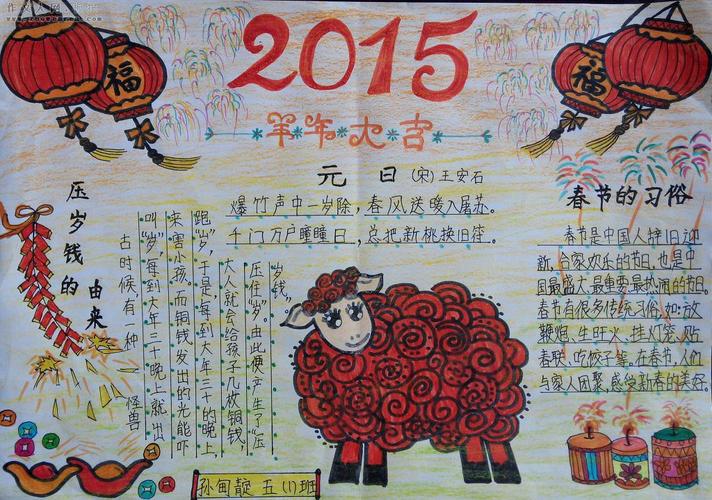 福
福
2015
羊年大吉
元日 (宋)王安石
爆竹声中一岁除,春风送暖入屠苏。
千门万户瞳瞳日,总把新桃换旧符。
压岁钱的由来
古时候有一种怪兽
叫“岁”,每到大年三十晚上就出
来害小孩。而铜钱发出的光能吓
跑“岁”,于是,每到大年三十的晚上,
大人就会给孩子几枚铜钱,
压住“岁”,由此便产生了“压
岁钱”。
春节的习俗
春节是中国人辞旧迎
新、合家欢乐的节日,也是中
国最盛大、最重要、最热闹的节日。
春节有很多传统习俗,如:放
鞭炮、生旺火、挂灯笼、贴
春联、吃饺子等。在春节,人们
与家人团聚,感受新春的美好。
孙甸靛 五(1)班